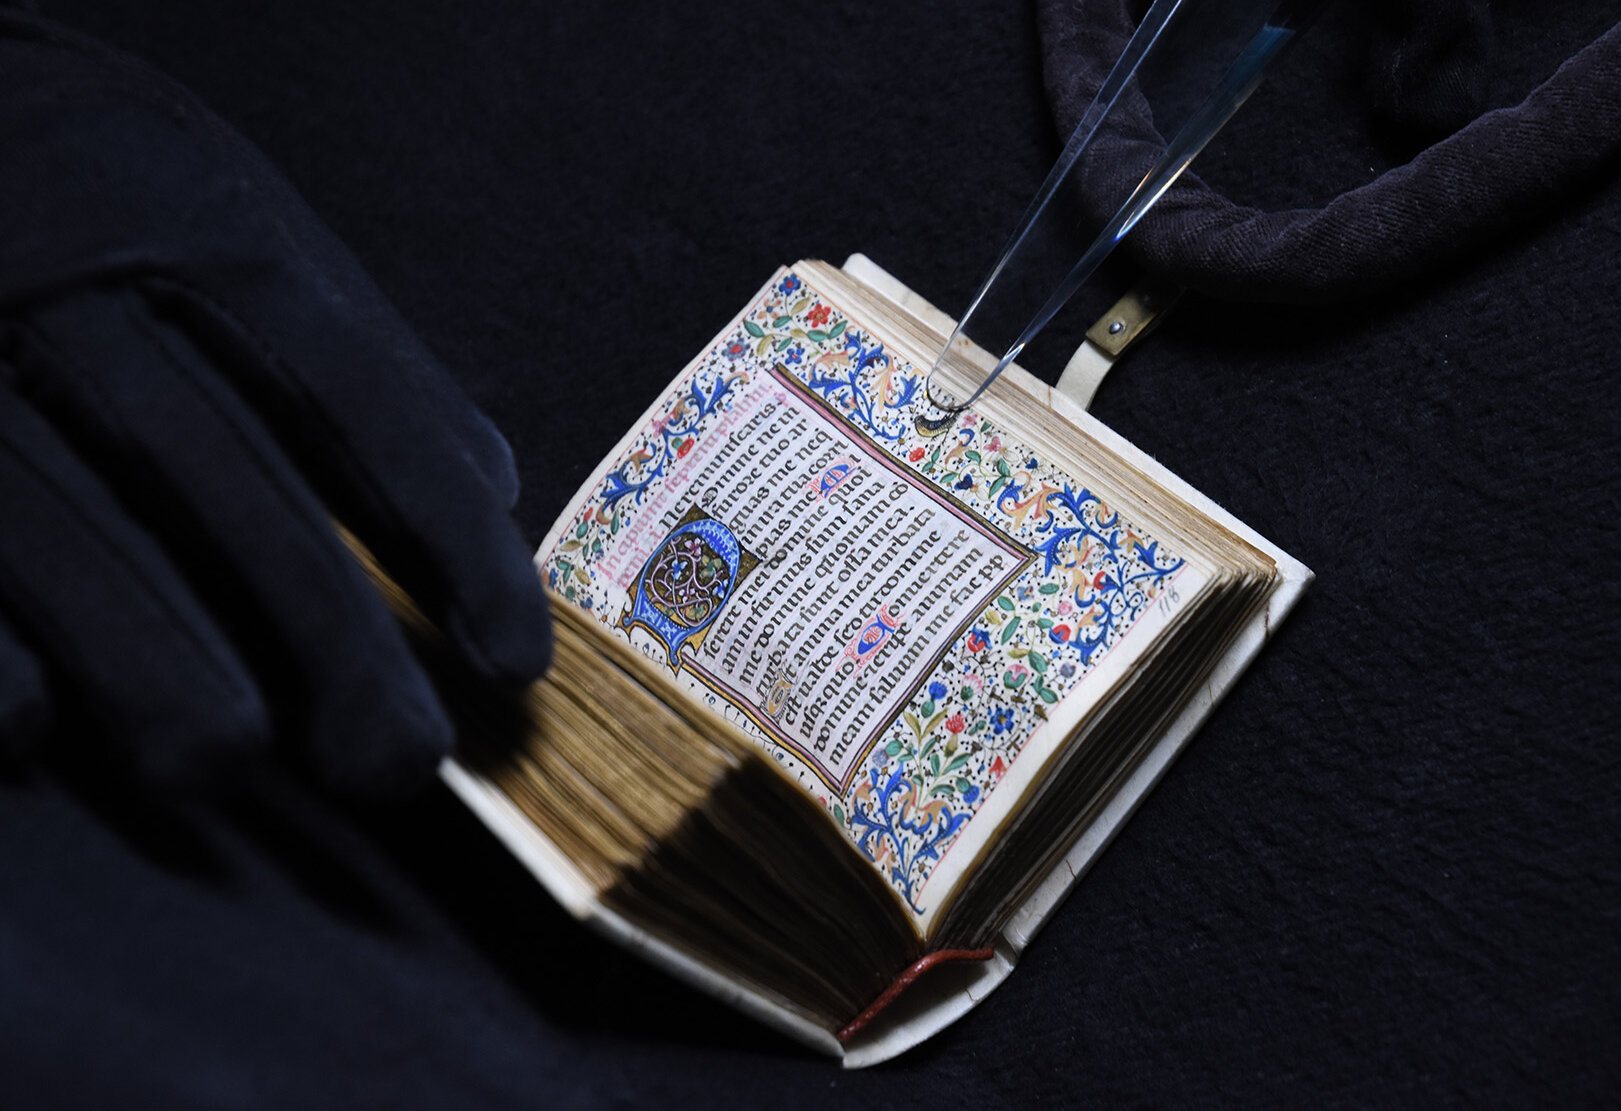 Incipiunt septem psalmi
Ne reminiscaris
Domine ne in
furore tuo ar
guas me neq
in ira tua corri
pias me Mi
serere mei do
mine quo
niam infirmus sum sana
me domine quoniam co
turbata sunt ossa mea.
Et anima mea turbata
est valde sed tu domine
usquequo Convertere
domine et eripe animam
meam saluum me fac pp
118